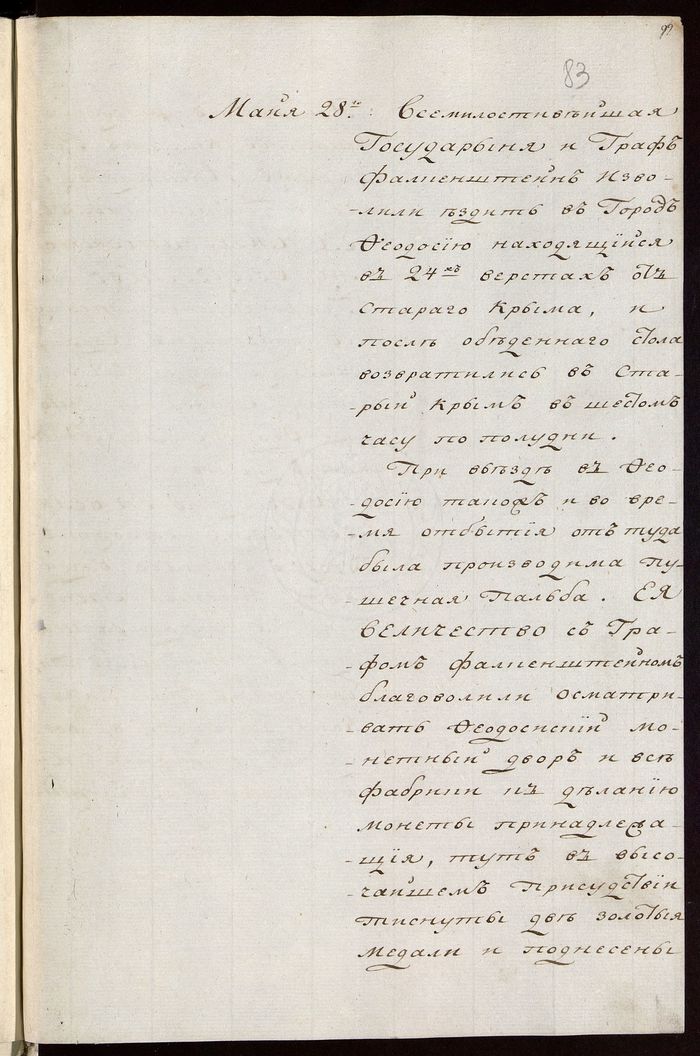 99
83
Маиїя 28го: Всемилостивѣйшая
Государыня и Графъ
Фалкенштейнъ Изво-
-лили ѣздить въ Городъ
Ѳеодосїю находящїйся
въ 24хъ верстахъ отъ
Стараго Крыма, и
послѣ обѣденнаго стола
возвратились въ Ста-
-рый Крымъ въ шестомъ
часу по полудни.
При въѣздѣ въ Ѳео-
-досїю такожъ и во вре-
-мя отбытїя отъ туда
была производима пу-
-шечная Пальба. ЕЯ
ВЕЛИЧЕСТВО съ Гра-
-фомъ Фалкенштейномъ
благоволили Осматри-
-вать Ѳеодосискїй мо-
-нетный дворъ и всѣ
Фабрики къ дѣланїю
монеты принадлежа-
-щїя, тутъ въ высо-
-чайшемъ Присудствїи
тиснуты двѣ золотыя
медали и поднесены